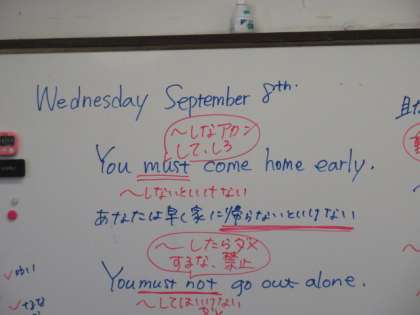 Wednesday September 8th.
〜しなアカン
して、しろ
You must come home early.
〜しないといけない
あなたは早く家に帰らないといけない
〜したらダメ
するな、禁止
You must not go out alone.
〜してはいけない